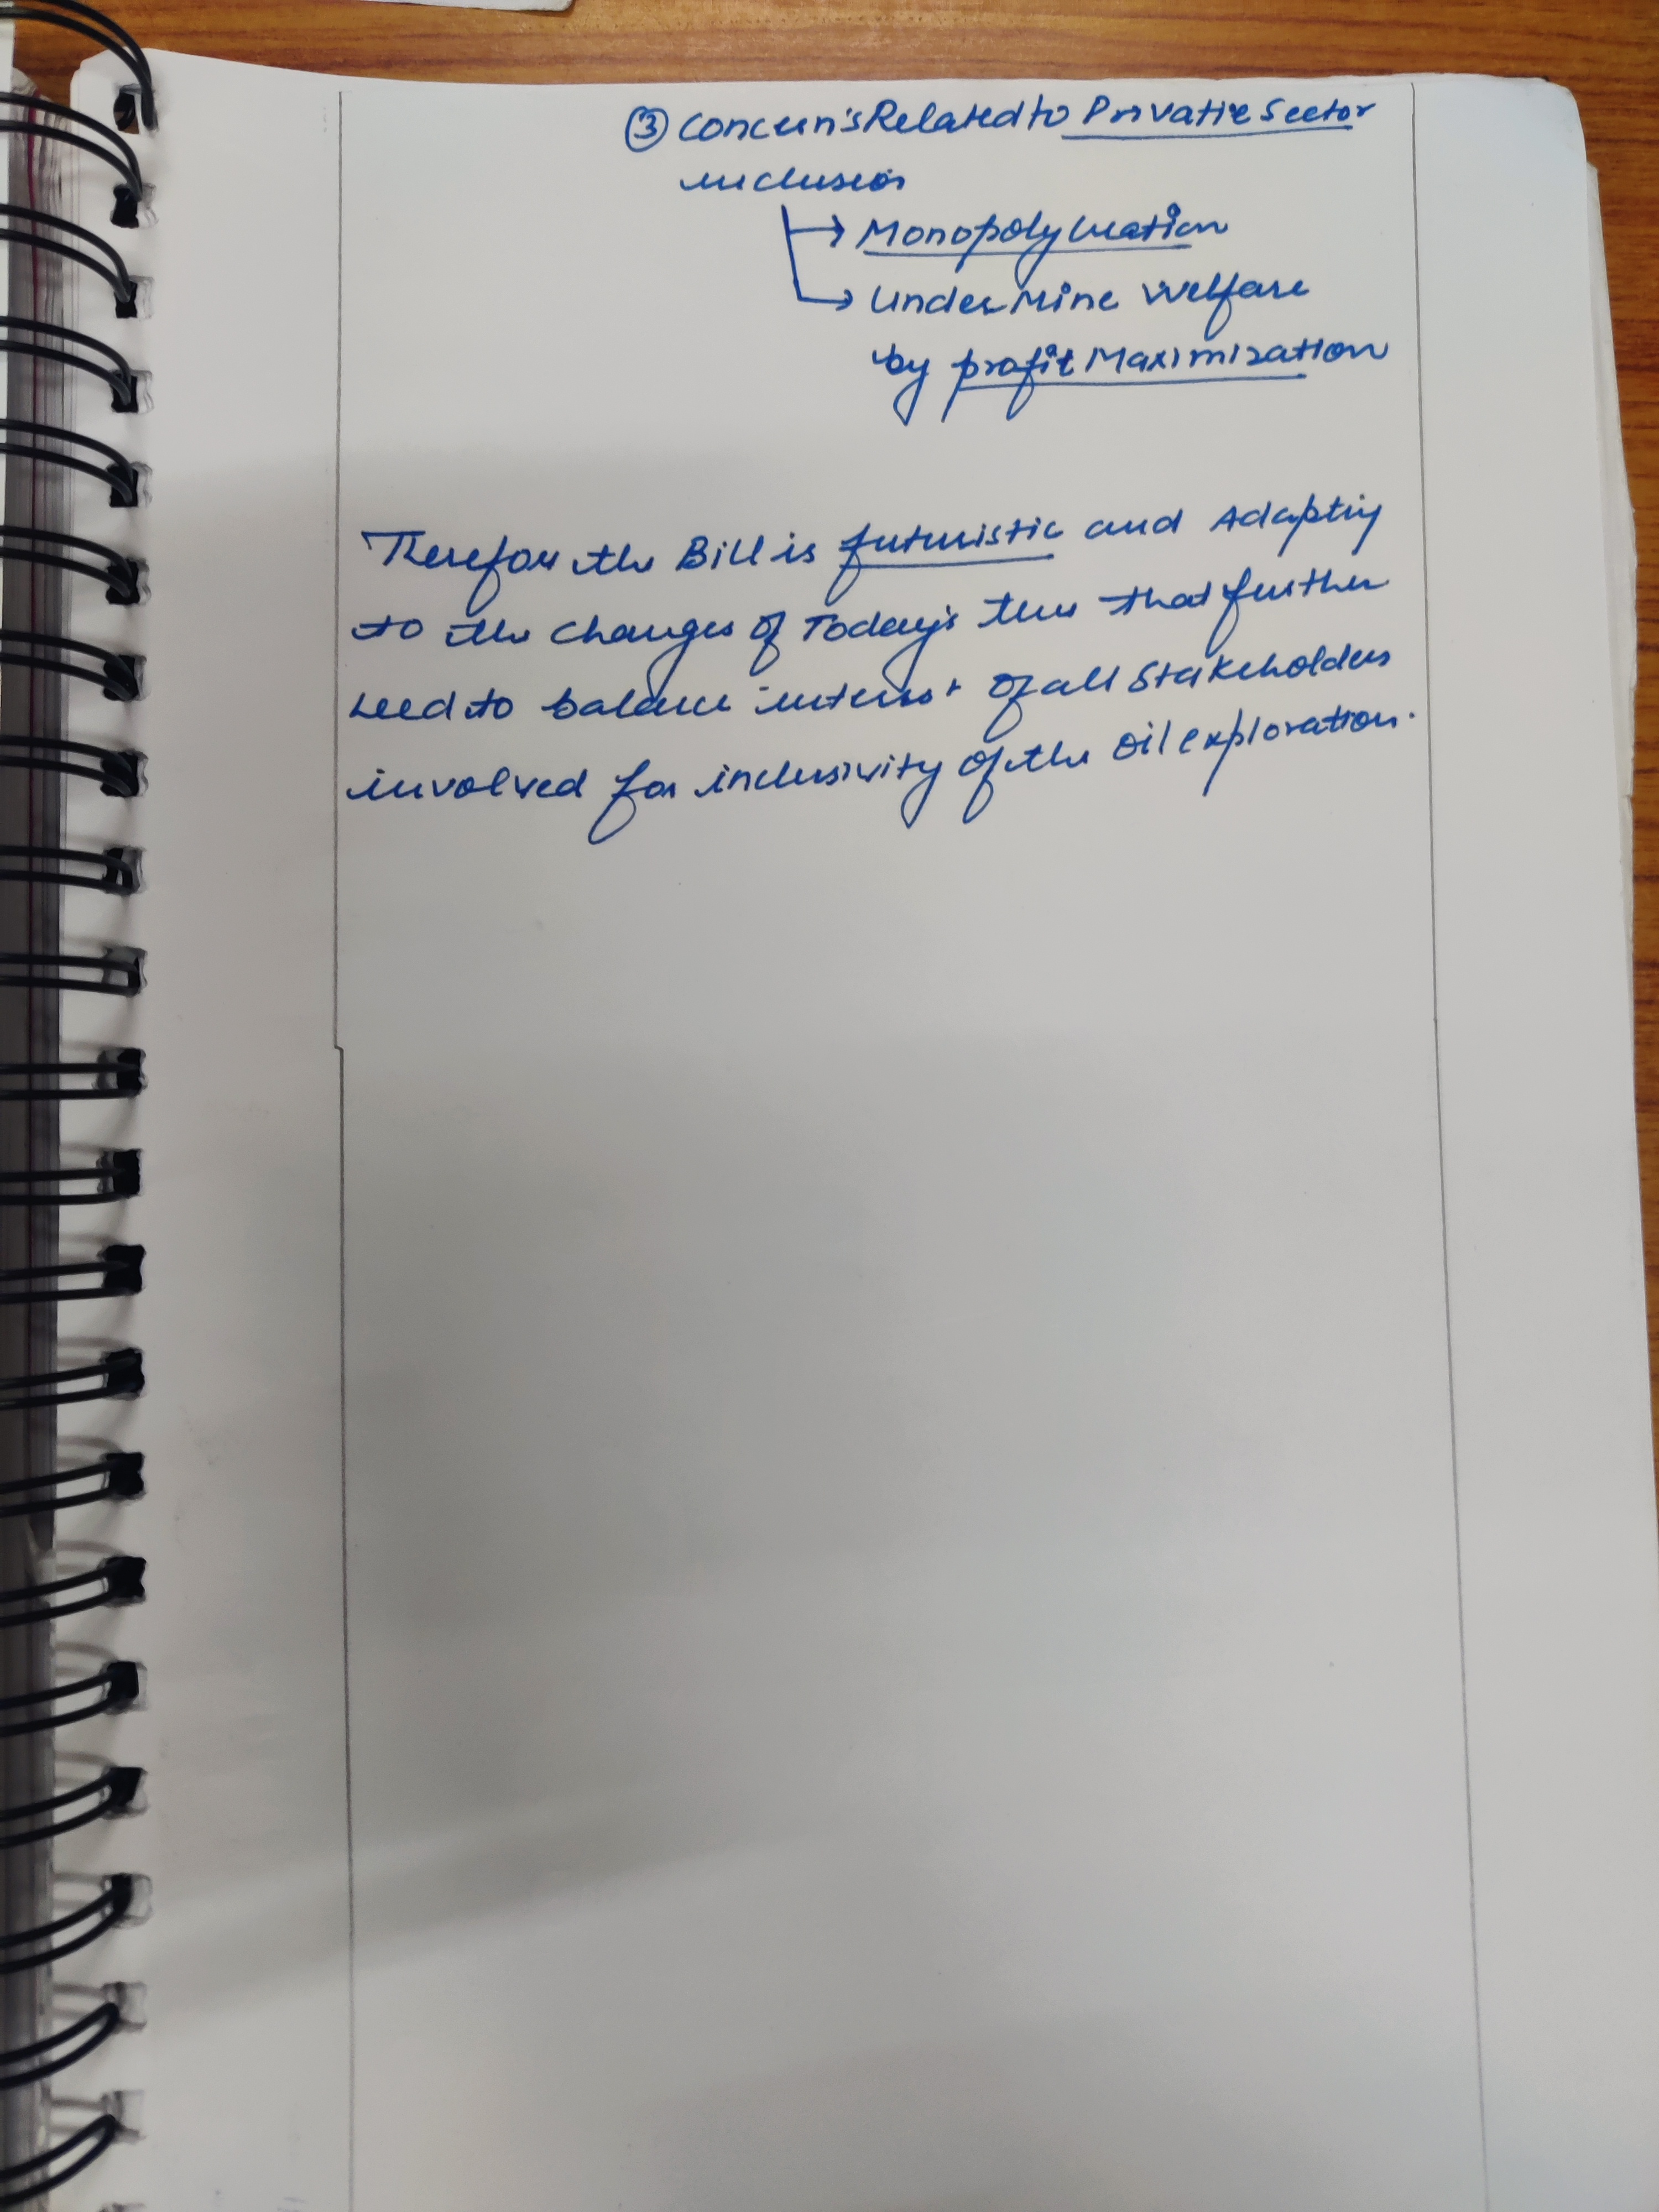 ③ Concern's Related to Private Sector
inclusion
→ Monopoly Creation
→ UnderMine Welfare
by profit Maximization
Therefore the Bill is futuristic and Adapting
to the changes of Today's time that further
need to balance interest of all Stakeholders
involved for inclusivity of the oil exploration.